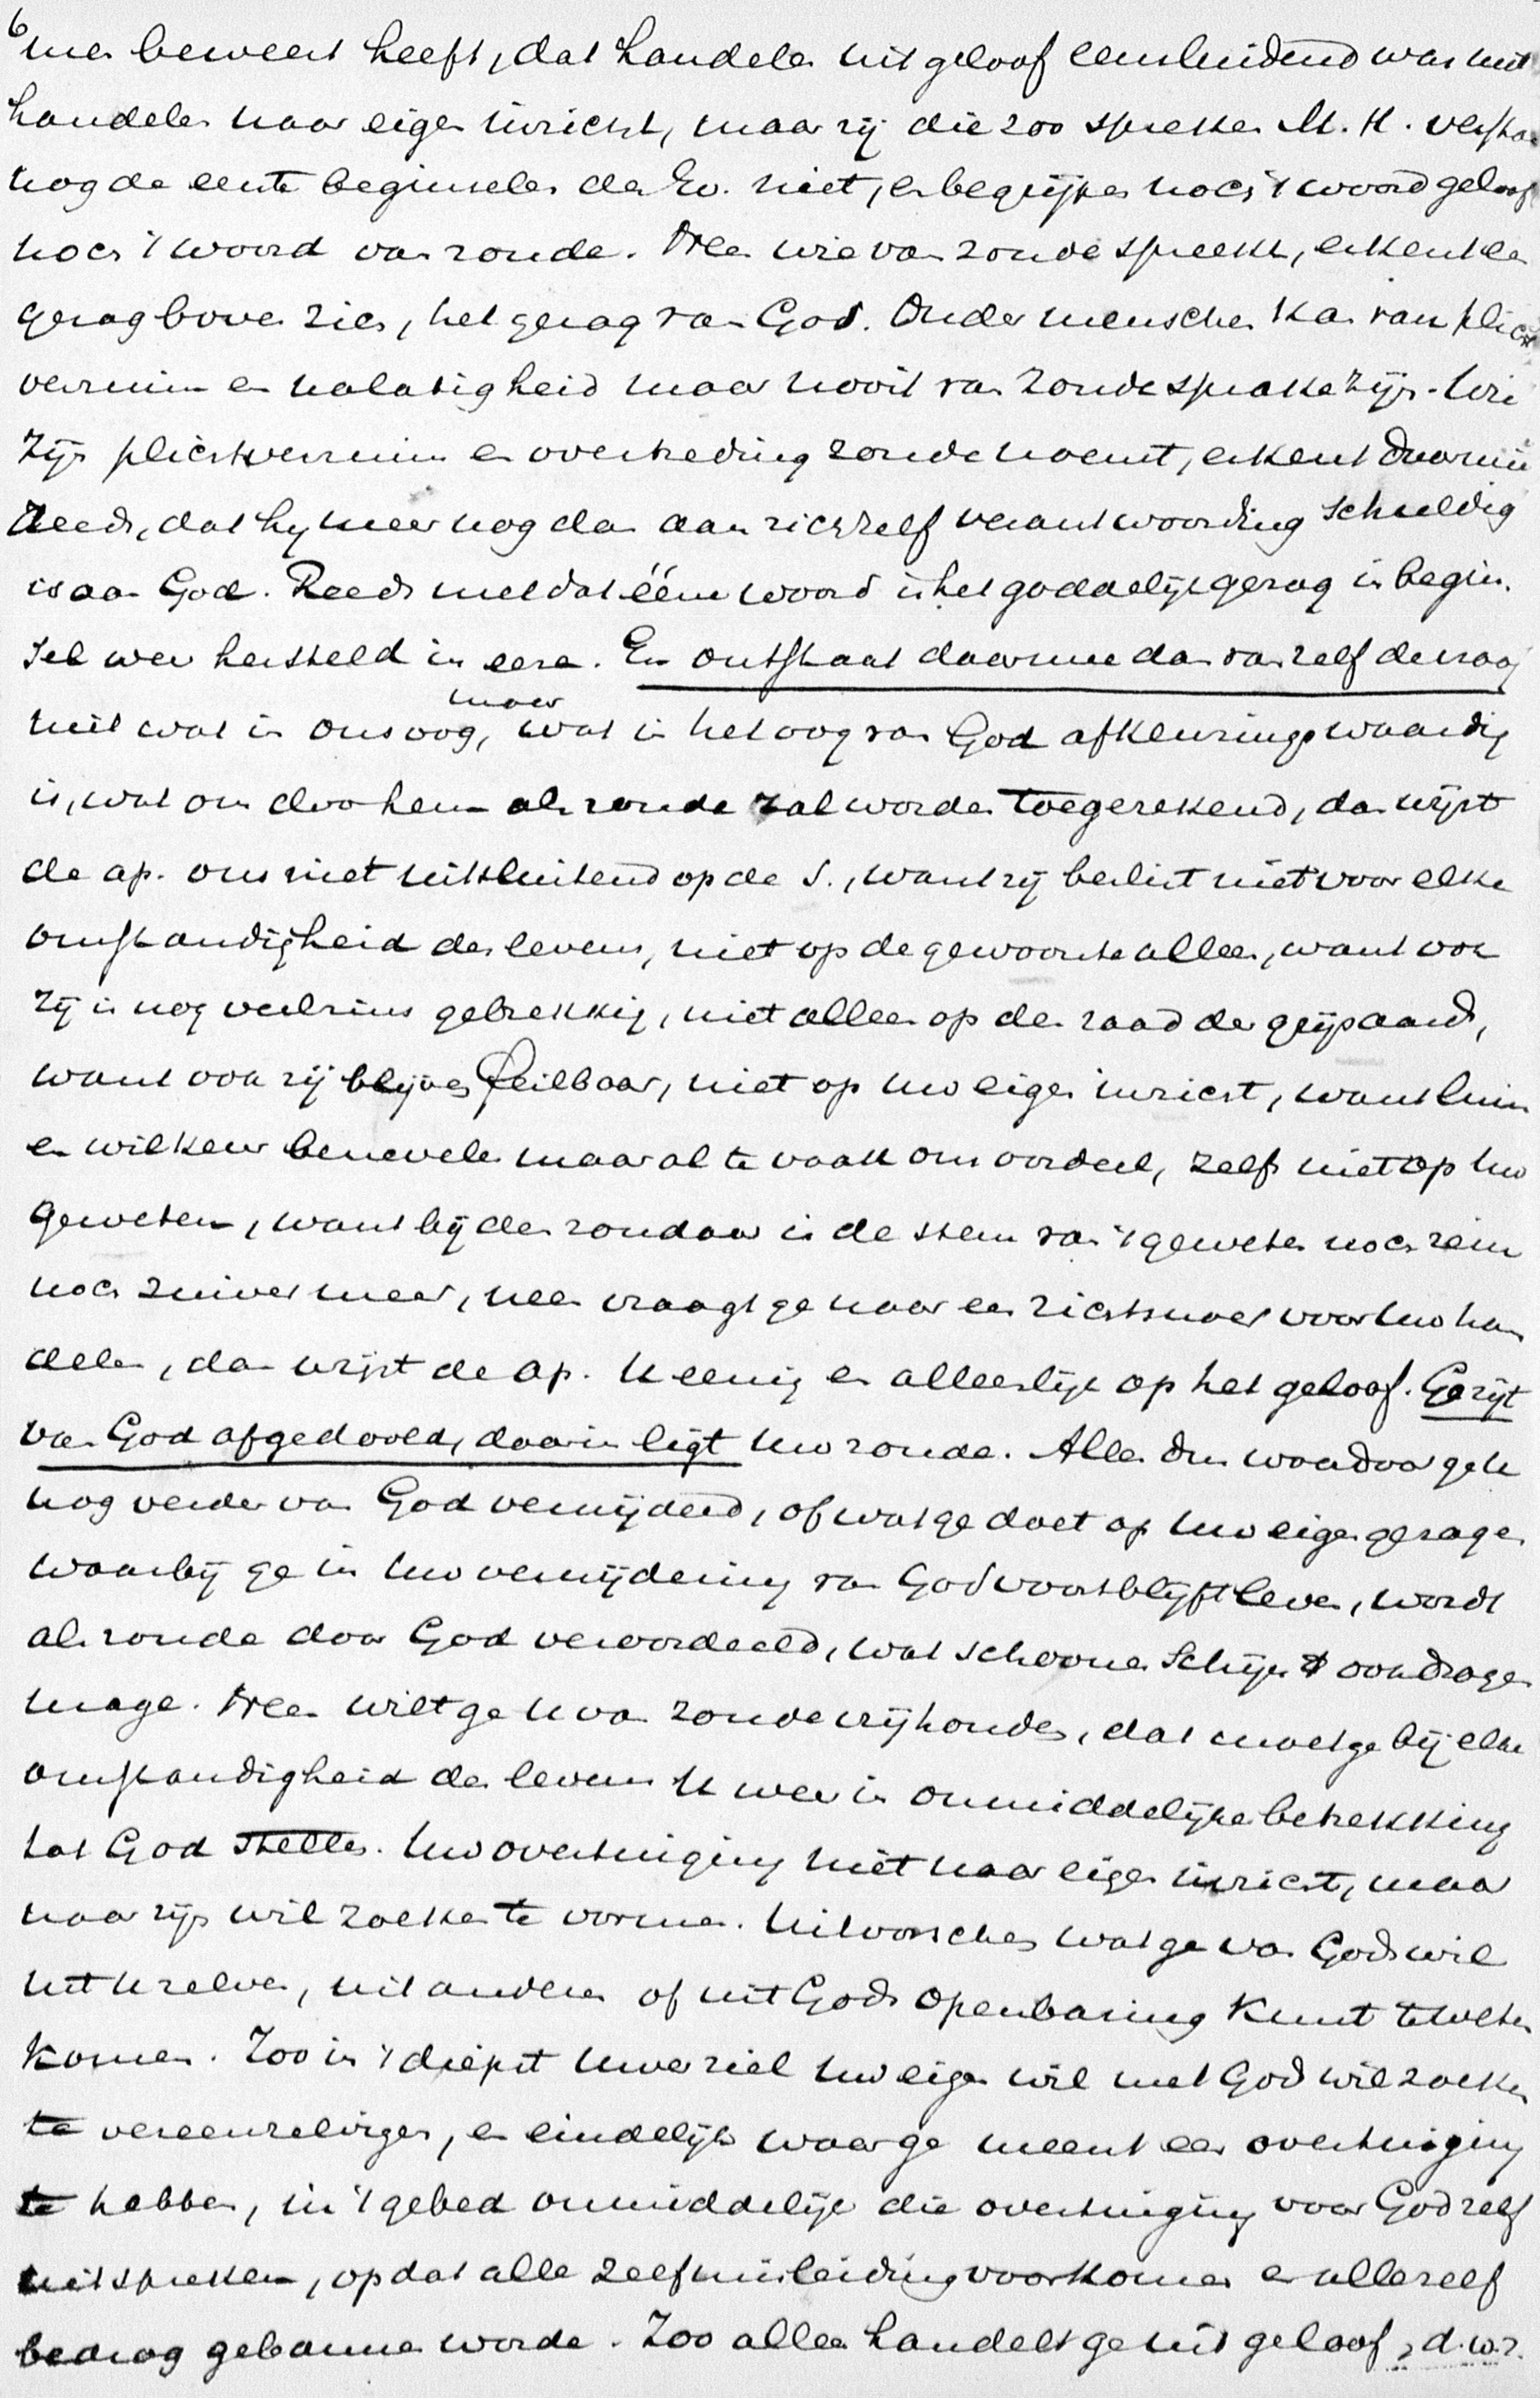 6
men beweert heeft, dat handelen uit geloof eensluidend was met
handelen naar eigen inzicht, maar zij die zoo spreken M. H. verstaan
nog de eerste beginselen der Ev. niet, en begrijpen noch 't woord geloof
noch 't woord van zonde. Neen wie van zonde spreekt, erkent een
gezag boven zich, het gezag van God. Onder menschen kan van plicht
verzuim en nalatigheid maar nooit van zonde sprake zijn. Wie
zijn plichtverzuim en overtreding zonde noemt, erkent daarin
reeds, dat hij meer nog dan aan zichzelf verantwoording schuldig
is aan God. Reeds met dat ééne woord is het goddelijk gezag in begin-
sel weer hersteld in eere. En ontstaat daarmee dan van zelf de vraag
niet wat in ons oog, maar wat in het oog van God afkeuringswaardig
is, wat ons door hem als zonde zal worden toegerekend, dan wijst
de ap. ons niet uitsluitend op de S., want zij beslist niet voor elke
omstandigheid des levens, niet op de gewoonte alleen, want ook
zij is nog veelzins gebrekkig, niet alleen op den raad der grijsaards,
want ook zij blijven feilbaar, niet op uw eigen inzicht, want luim
en willekeur benevelen maar al te vaak ons oordeel, zelfs niet op uw
geweten, want bij den zondaar is de stem van 't geweten noch rein
noch zuiver meer, neen vraagt ge naar een richtsnoer voor uw han
delen, dan wijst de ap. U eenig en alleenlijk op het geloof. Ge zijt
van God afgedoold, daarin ligt uw zonde. Alles dus waardoor ge U
nog verder van God verwijderd, of wat ge doet op uw eigen gezag en
waarbij ge in uw verwijdering van God voortblijft leven, wordt
als zonde door God veroordeeld, wat schoonen schijn 't ook dragen
moge. Neen wilt ge U van zonde vrijhouden, dat moet ge bij elke
omstandigheid des levens U weer in onmiddelijke betrekking
tot God stellen. Uw overtuiging niet naar eigen inzicht, maar
naar zijn wil zoeken te vormen. Uitvorschen wat ge van Gods wil
uit U zelven, uit anderen of uit Gods openbaring kunt te weten
komen. Zoo in 't diepst uwer ziel uw eigen wil met Gods wil zoeken
te vereenzelvigen, en eindelijk waar ge meent een overtuiging
te hebben, in 't gebed onmiddelijk die overtuiging voor God zelf
uitspreken, opdat alle zelfmisleiding voorkomen en alle zelf
bedrog gebannen worde. Zoo alleen handelt ge uit geloof, d.w.z.